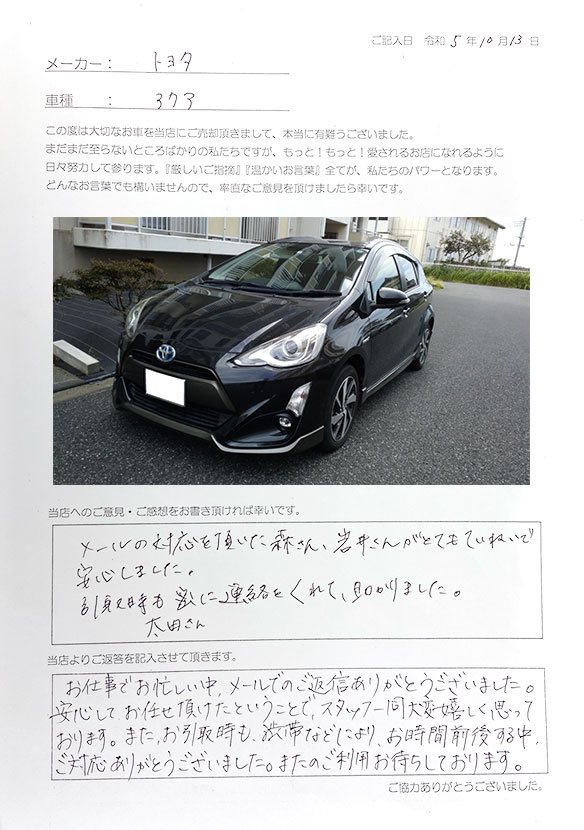 ご記入日 令和 5 年 10 月 13 日
メーカー： トヨタ
車種 ： アクア
この度は大切なお車を当店にご売却頂きまして、本当に有難うございました。
まだまだ至らないところばかりの私たちですが、もっと！もっと！愛されるお店になれるように
日々努力して参ります。『厳しいご指摘』『温かいお言葉』全てが、私たちのパワーとなります。
どんなお言葉でも構いませんので、率直なご意見を頂けましたら幸いです。
当店へのご意見・ご感想をお書き頂ければ幸いです。
メールの対応を頂いた森さん、岩井さんがとてもていねいで
安心しました。
引取時も に連絡をくれて、助かりました。
太田さん
当店よりご返答を記入させて頂きます。
お仕事でお忙しい中、メールでのご返信ありがとうございました。
安心してお任せ頂けたということで、スタッフ一同大変嬉しく思って
おります。また、お引取時も、渋滞などにより、お時間前後する中、
ご対応ありがとうございました。またのご利用お待ちしております。
ご協力ありがとうございました。